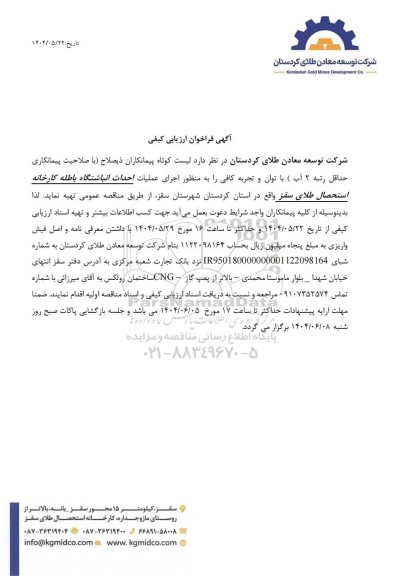 شرکت توسعه معادن طلای کردستان
Kordestan Gold Mines Development Co.
تاریخ:۱۴۰۴/۰۵/۲۲
آگهی فراخوان ارزیابی کیفی
شرکت توسعه معادن طلای کردستان در نظر دارد لیست کوتاه پیمانکاران ذیصلاح (با صلاحیت پیمانکاری
حداقل رتبه ۲ آب ) با توان و تجربه کافی را به منظور اجرای عملیات احداث انباشتگاه باطله کارخانه
استحصال طلای سقز واقع در استان کردستان شهرستان سقز، از طریق مناقصه عمومی تهیه نماید. لذا
بدینوسیله از کلیه پیمانکاران واجد شرایط دعوت بعمل می‌آید جهت کسب اطلاعات بیشتر و تهیه اسناد ارزیابی
کیفی از تاریخ ۱۴۰۴/۰۵/۲۲ و حداکثر تا ساعت ۱۶ مورخ ۱۴۰۴/۰۵/۲۹ با داشتن معرفی نامه و اصل فیش
واریزی به مبلغ پنجاه میلیون ریال بحساب ۱۱۲۲۰۹۸۱۶۴ بنام شرکت توسعه معادن طلای کردستان به شماره
شبای IR950180000000001122098164 نزد بانک تجارت شعبه مرکزی به آدرس دفتر سقز انتهای
خیابان شهدا _ بلوار ماموستا محمدی – بالاتر از پمپ گاز CNG – ساختمان رولکس به آقای میرزائی با شماره
تماس ۰۹۱۰۷۳۵۲۵۷۴ مراجعه و نسبت به دریافت اسناد ارزیابی کیفی و اسناد مناقصه اولیه اقدام نمایند. ضمنا
مهلت ارایه پیشنهادات حداکثر تا ساعت ۱۷ مورخ ۱۴۰۴/۰۶/۰۵ می باشد و جلسه بازگشایی پاکات صبح روز
شنبه ۱۴۰۴/۰۶/۰۸ برگزار می گردد.
ParsNamadData
پایگاه اطلاع رسانی مناقصه و مزایده
۰۲۱-۸۸۳۴۹۶۷۰-۵
سقز، کیلومتر ۱۵ محور سقز _ بانه، بالاتر از
روستای ماژوجدارە، کارخانه استحصال طلای سقز
۰۸۷-۳۶۳۱۹۴۰۴ ۰۸۷-۳۶۳۱۹۴۰۰ ۶۶۸۹۱-۵۸۰۰۸
info@kgmidco.com www.kgmidco.com